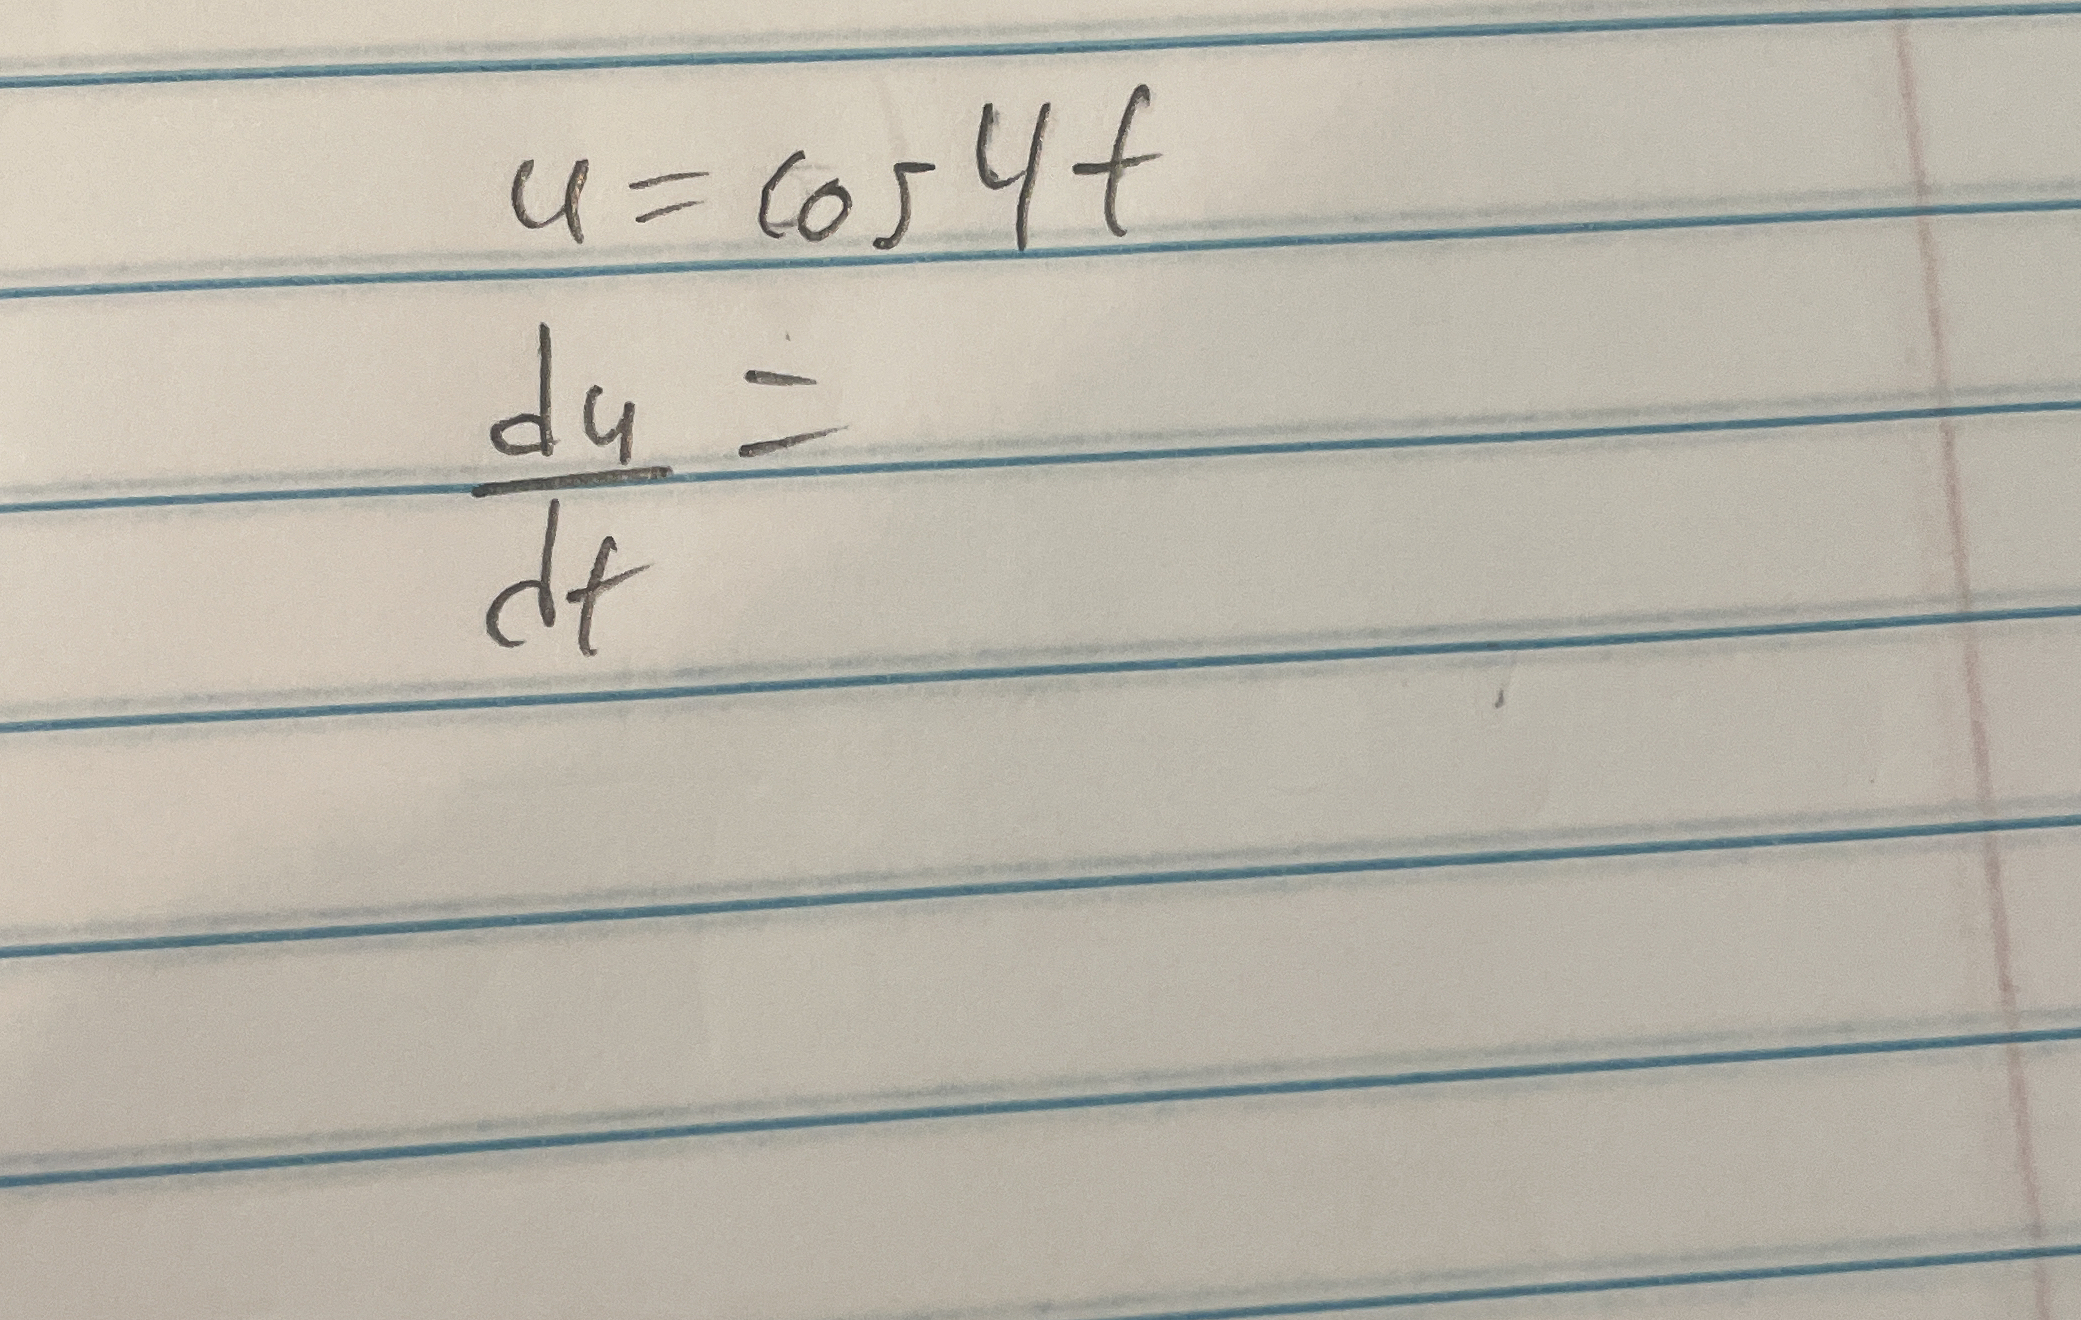 u = cos 4t
du/dt =